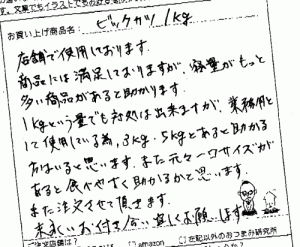 す。文章でもイラストでも
お買い上げ商品名: ビックカツ 1kg
店舗で使用しております。
商品には満足しておりますが、容量がもっと
多い商品があると助かります。
1kgという量でも対処は出来ますが、業務用と
して使用している為、3kg・5kgとあると助かる
方はいると思います。また元々一口サイズが
あると食べやすく助かるかと思います。
また注文させて頂きます。
末永いお付き合い宜しくお願い致します
ご注文店舗は? amazon 左記以外のおつまみ研究所